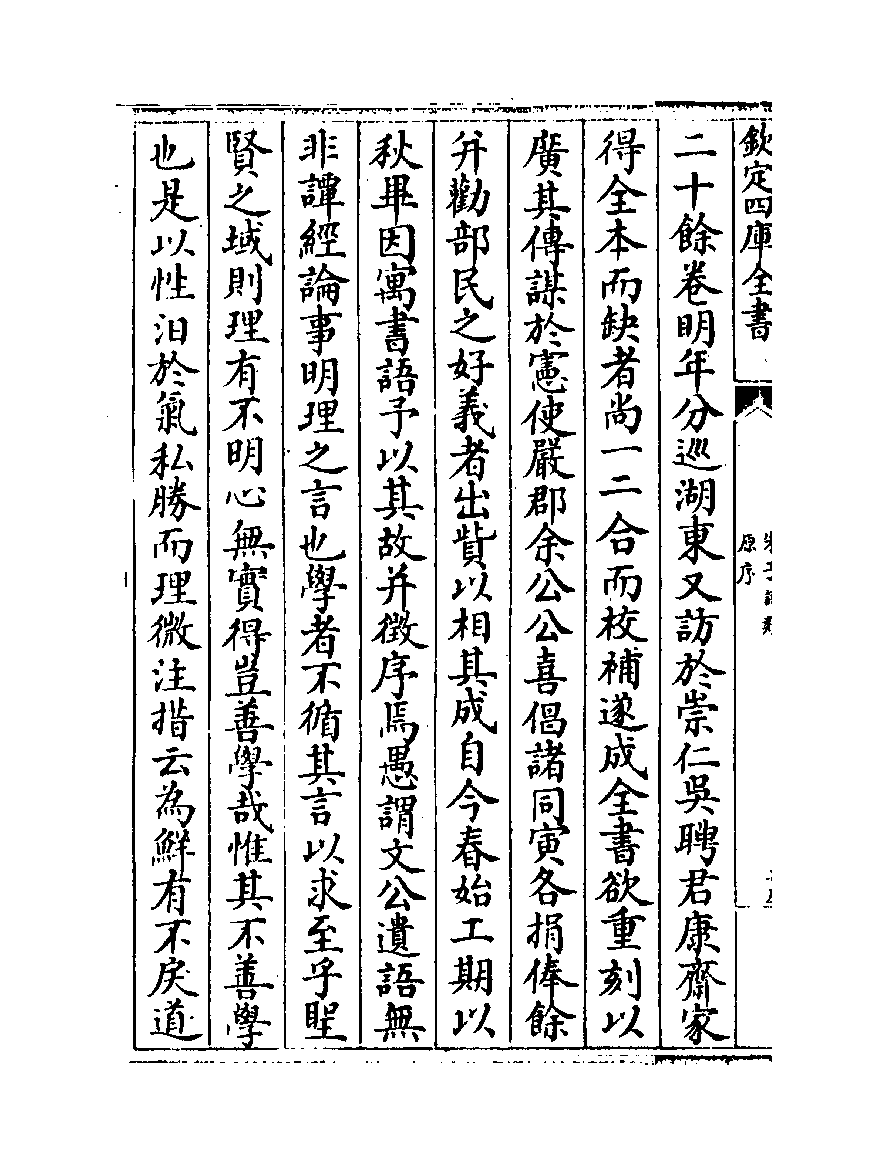 欽定四庫全書
原序
二十餘卷明年分巡湖東又訪於崇仁吳聘君康齋家
得全本而缺者尚一二合而校補遂成全書欲重刻以
廣其傳謀於憲使嚴郡余公公喜倡諸同寅各捐俸餘
并勸部民之好義者出貲以相其成自今春始工期以
秋畢因寓書語予以其故并徵序焉愚謂文公遺語無
非譚經論事明理之言也學者不循其言以求至乎聖
賢之域則理有不明心無實得豈善學哉惟其不善學
也是以性汩於氣私勝而理微注措云為鮮有不戾道